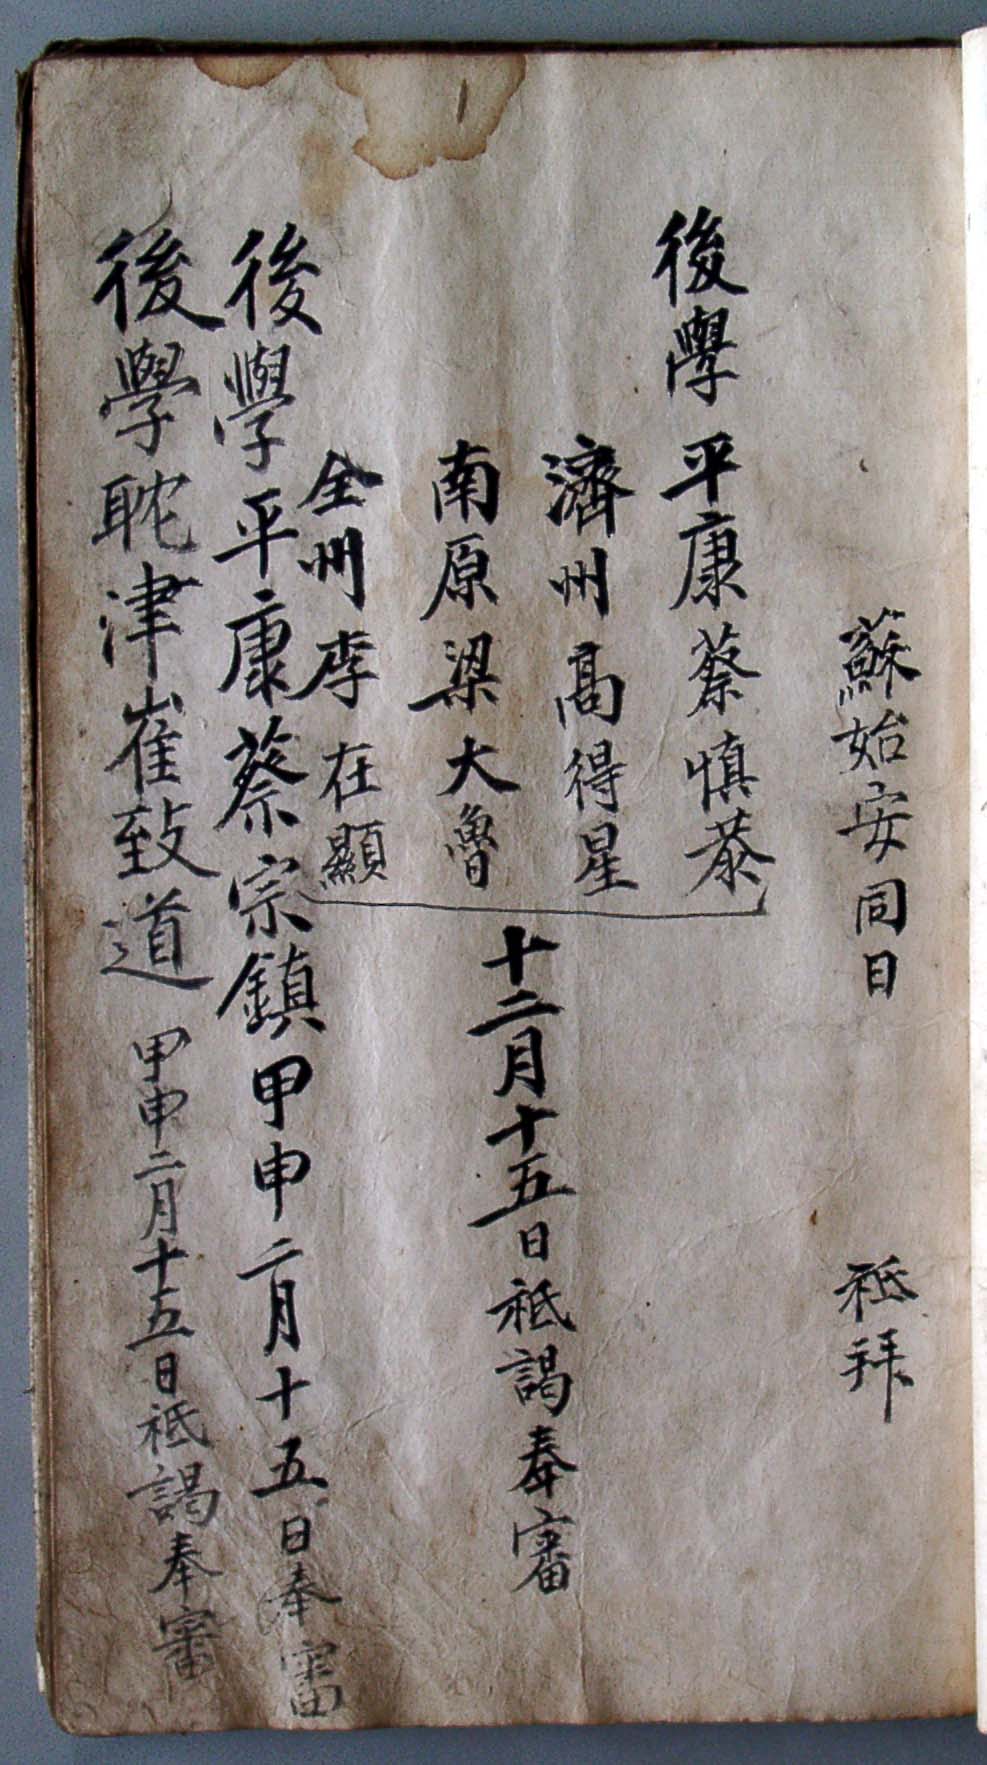 蘇始安同日 祗拜
後學 平康蔡慎恭
濟州高得星
南原梁大魯
全州李在顯
十二月十五日祗謁奉審
後學平康蔡宗鎮甲申二月十五日奉審
後學耽津崔致道 甲申二月十五日祗謁奉審